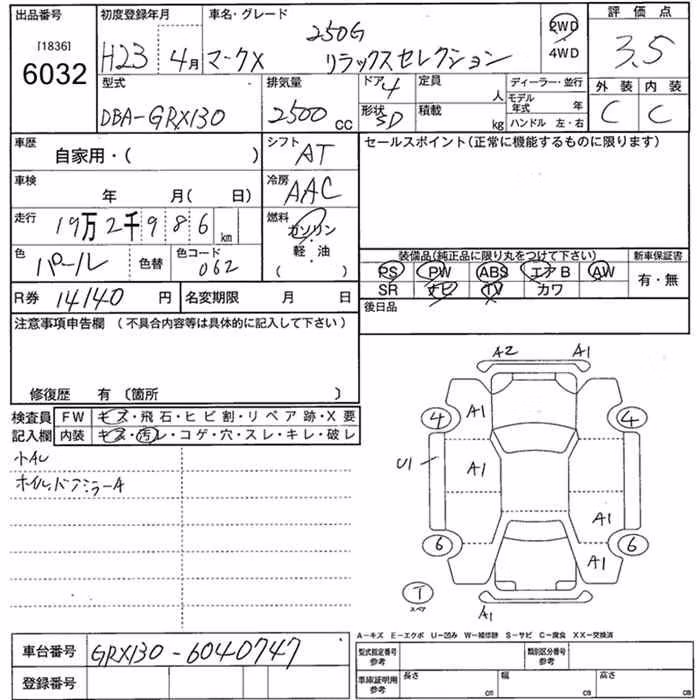 出品番号 初度登録年月 車名・グレード 250G 2WD 評価点
[1836] 6032 H23 4月 マークX リラックスセレクション 4WD 3.5
型式 排気量 ドア 4 定員 人 ディーラー・並行 外装 内装
DBA-GRX130 2500cc 形状 SD 積載 kg モデル年式 年 ハンドル 左・右 C C
車歴 自家用・( ) シフト AT セールスポイント(正常に機能するものに限ります)
車検 年 月( 日) 冷房 AAC
走行 19万2千986km 燃料 ガソリン・軽・油 ( )
色 パール 色替 色コード 062 装備品(純正品に限り丸をつけて下さい) 新車保証書
PS PW ABS エアB AW 有・無
SR ナビ TV カワ
R券 14140円 名変期限 月 日 後日品
注意事項申告欄 (不具合内容等は具体的に記入して下さい)
修復歴 有 〔箇所 〕
検査員 FW キズ・飛石・ヒビ割・リペア跡・X要
記入欄 内装 キズ・汚レ・コゲ・穴・スレ・キレ・破レ
小AU
ホイル,ドアミラーA
A2 A1
4 A1 4
U1 A1
A1
6 A1 6
T スペア A1
A-キズ E-エクボ U-凹み W-補修跡 S-サビ C-腐食 XX-交換済
車台番号 GRX130-6040747 型式指定番号 参考 類別区分番号 参考
登録番号 車庫証明用 参考 長さ cm 幅 cm 高さ cm